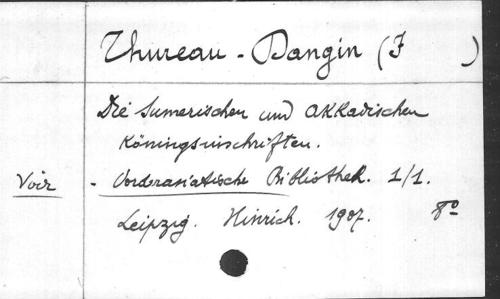 Thureau-Dangin (F )
Die Sumerischen und Akkadischen
Köningsinschriften.
Voir - Vorderasiatische Bibliothek. 1/1.
Leipzig. Hinrich. 1907. 8°